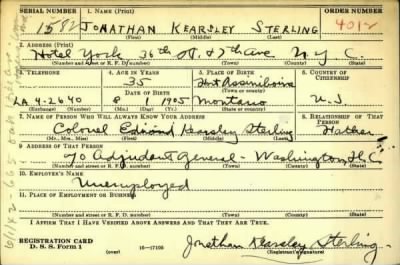 SERIAL NUMBER 1. NAME (Print) ORDER NUMBER
1582 JONATHAN KEARSLEY STERLING 4012
(First) (Middle) (Last)
2. ADDRESS (Print)
Hotel York 36th St. & 7th ave N.Y.C.
(Number and street or R. F. D. number) (Town) (County) (State)
3. TELEPHONE 4. AGE IN YEARS 5. PLACE OF BIRTH 6. COUNTRY OF CITIZENSHIP
35 Ft Assiniboine
DATE OF BIRTH (Town or county)
LA 4-2640 8 1905 Montana U.S
(Exchange) (Number) (Mo.) (Day) (Yr.) (State or country)
7. NAME OF PERSON WHO WILL ALWAYS KNOW YOUR ADDRESS 8. RELATIONSHIP OF THAT PERSON
Colonel Edmond Kearsley Sterling Father
(Mr., Mrs., Miss) (First) (Middle) (Last)
9. ADDRESS OF THAT PERSON
℅ Adjudant General - Washington, D.C.
(Number and street or R. F. D. number) (Town) (County) (State)
10. EMPLOYER'S NAME
Unemployed
11. PLACE OF EMPLOYMENT OR BUSINESS
(Number and street or R. F. D. number) (Town) (County) (State)
I AFFIRM THAT I HAVE VERIFIED ABOVE ANSWERS AND THAT THEY ARE TRUE.
REGISTRATION CARD
D. S. S. Form 1 (over) 16—17105 Jonathan Kearsley Sterling
(Registrant's signature)